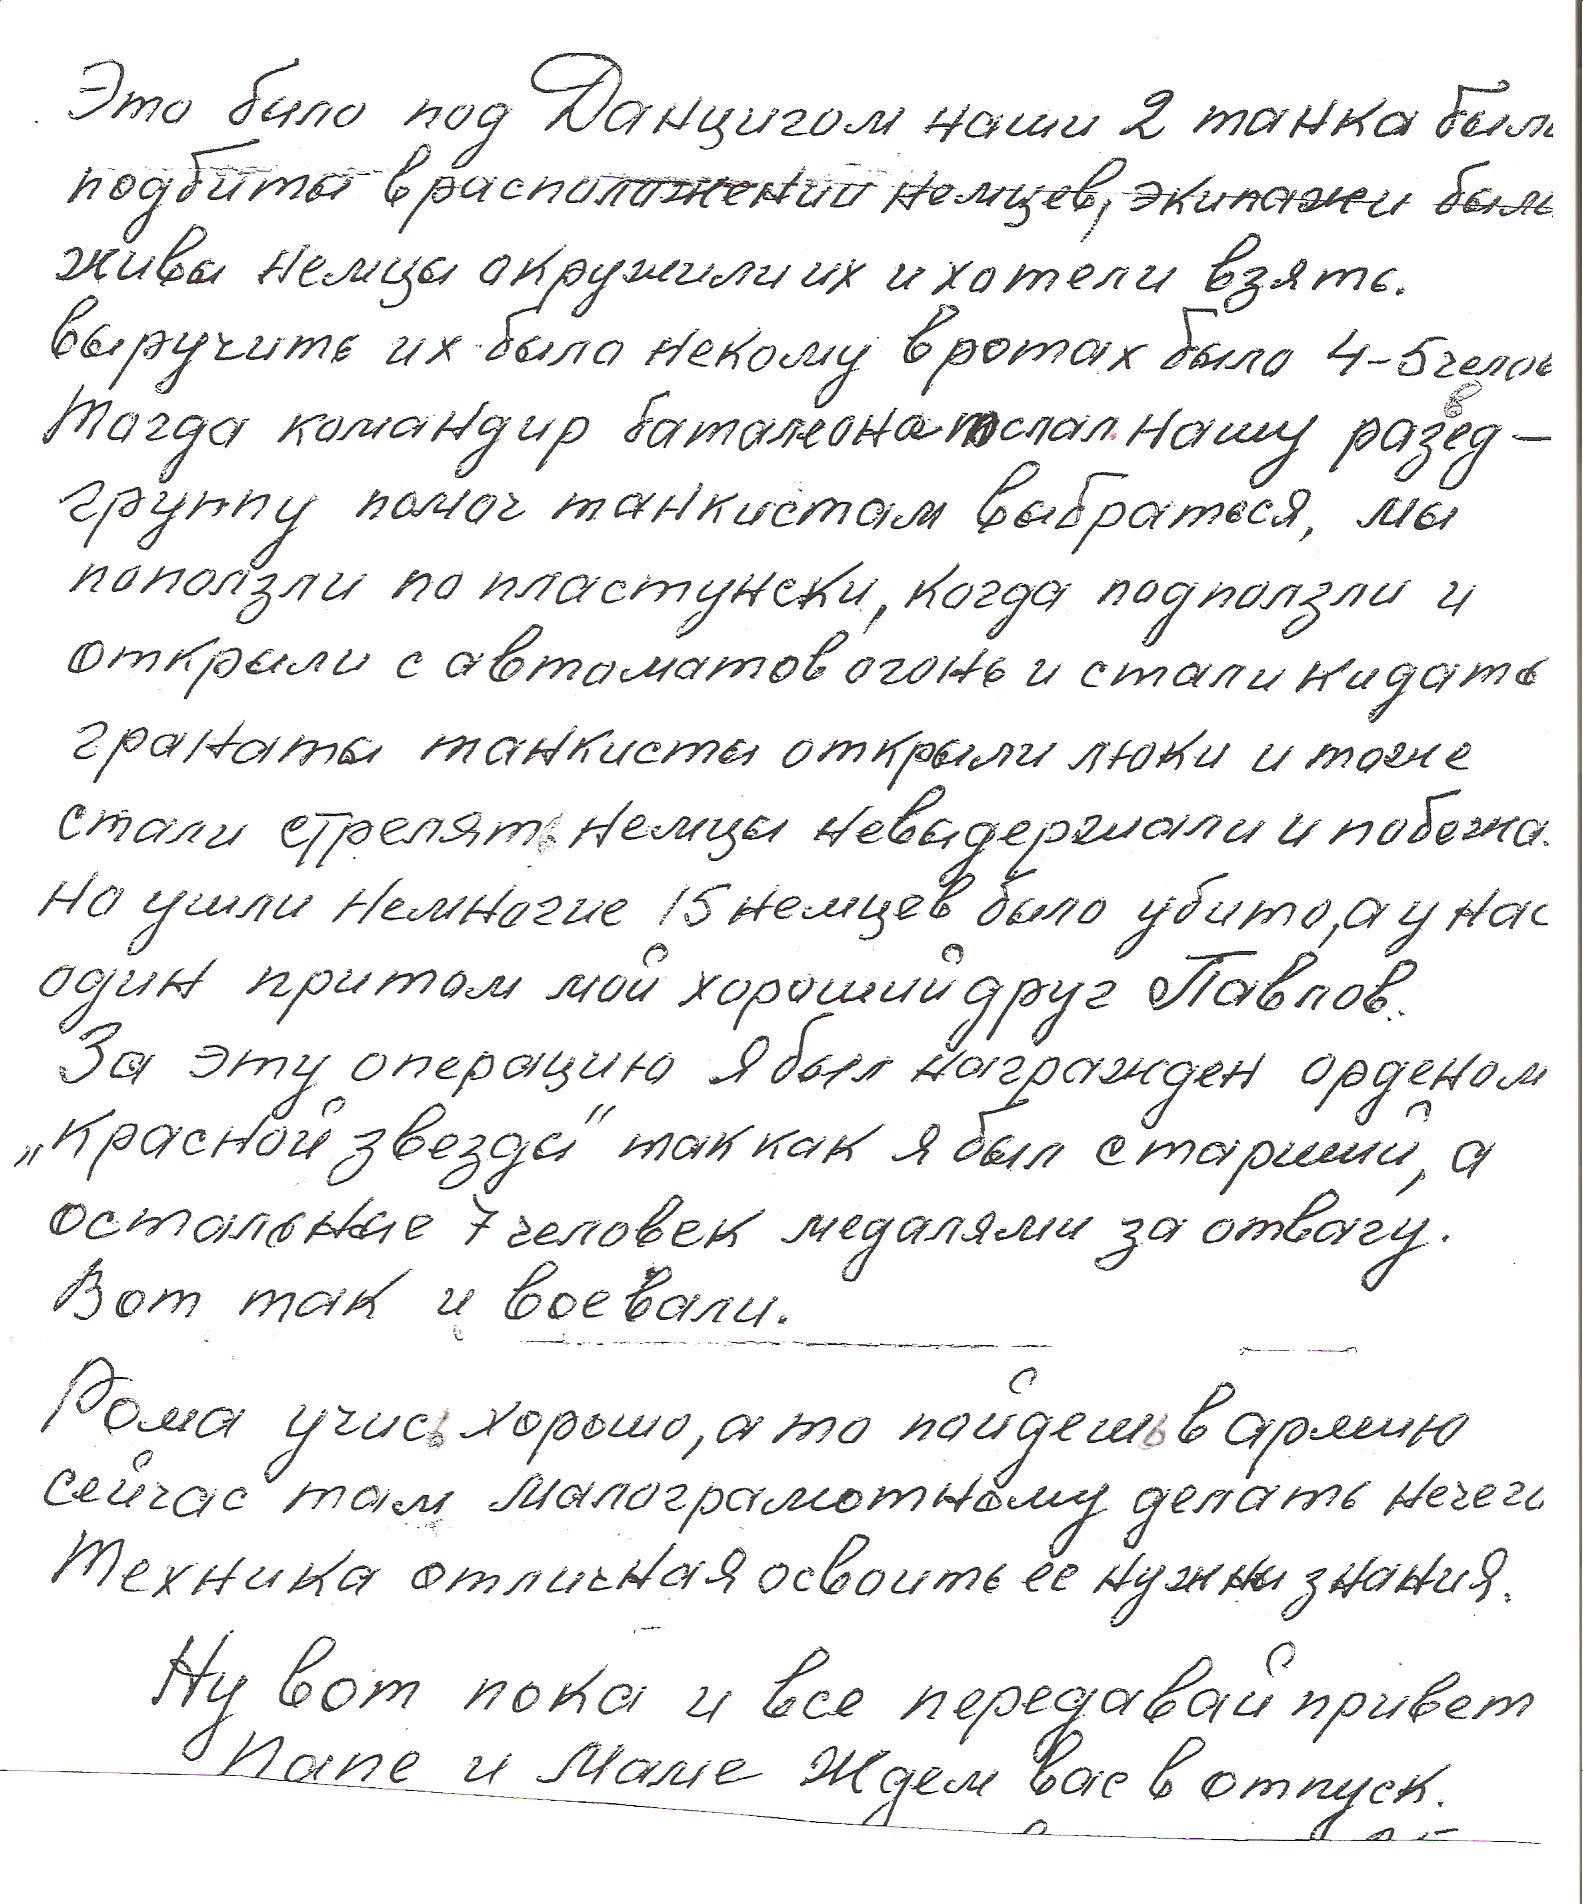 Это было под Данцигом наши 2 танка были
подбиты в расположений немцев, экипажи были
живы немцы окружили их и хотели взять.
выручить их было некому в ротах было 4-5 челов
Тогда командир баталеона послал нашу развед-
группу помоч танкистам выбраться, мы
поползли по пластунски, когда подползли и
открыли с автоматов огонь и стали кидать
гранаты танкисты открыли люки и тоже
стали стрелять немцы невыдержали и побежа.
но ушли немногие 15 немцев было убито, а у нас
один притом мой хороший друг Павлов.
За эту операцию я был награжден орденом
„Красной звезды" так как я был старший, а
остальные 7 человек медалями за отвагу.
Вот так и воевали.
Рома учись хорошо, а то пойдешь в армию
сейчас там малограмотному делать нечего
Техника отличная освоить ее нужны знания.
Ну вот пока и все передавай привет
Папе и Маме Ждем вас в отпуск.